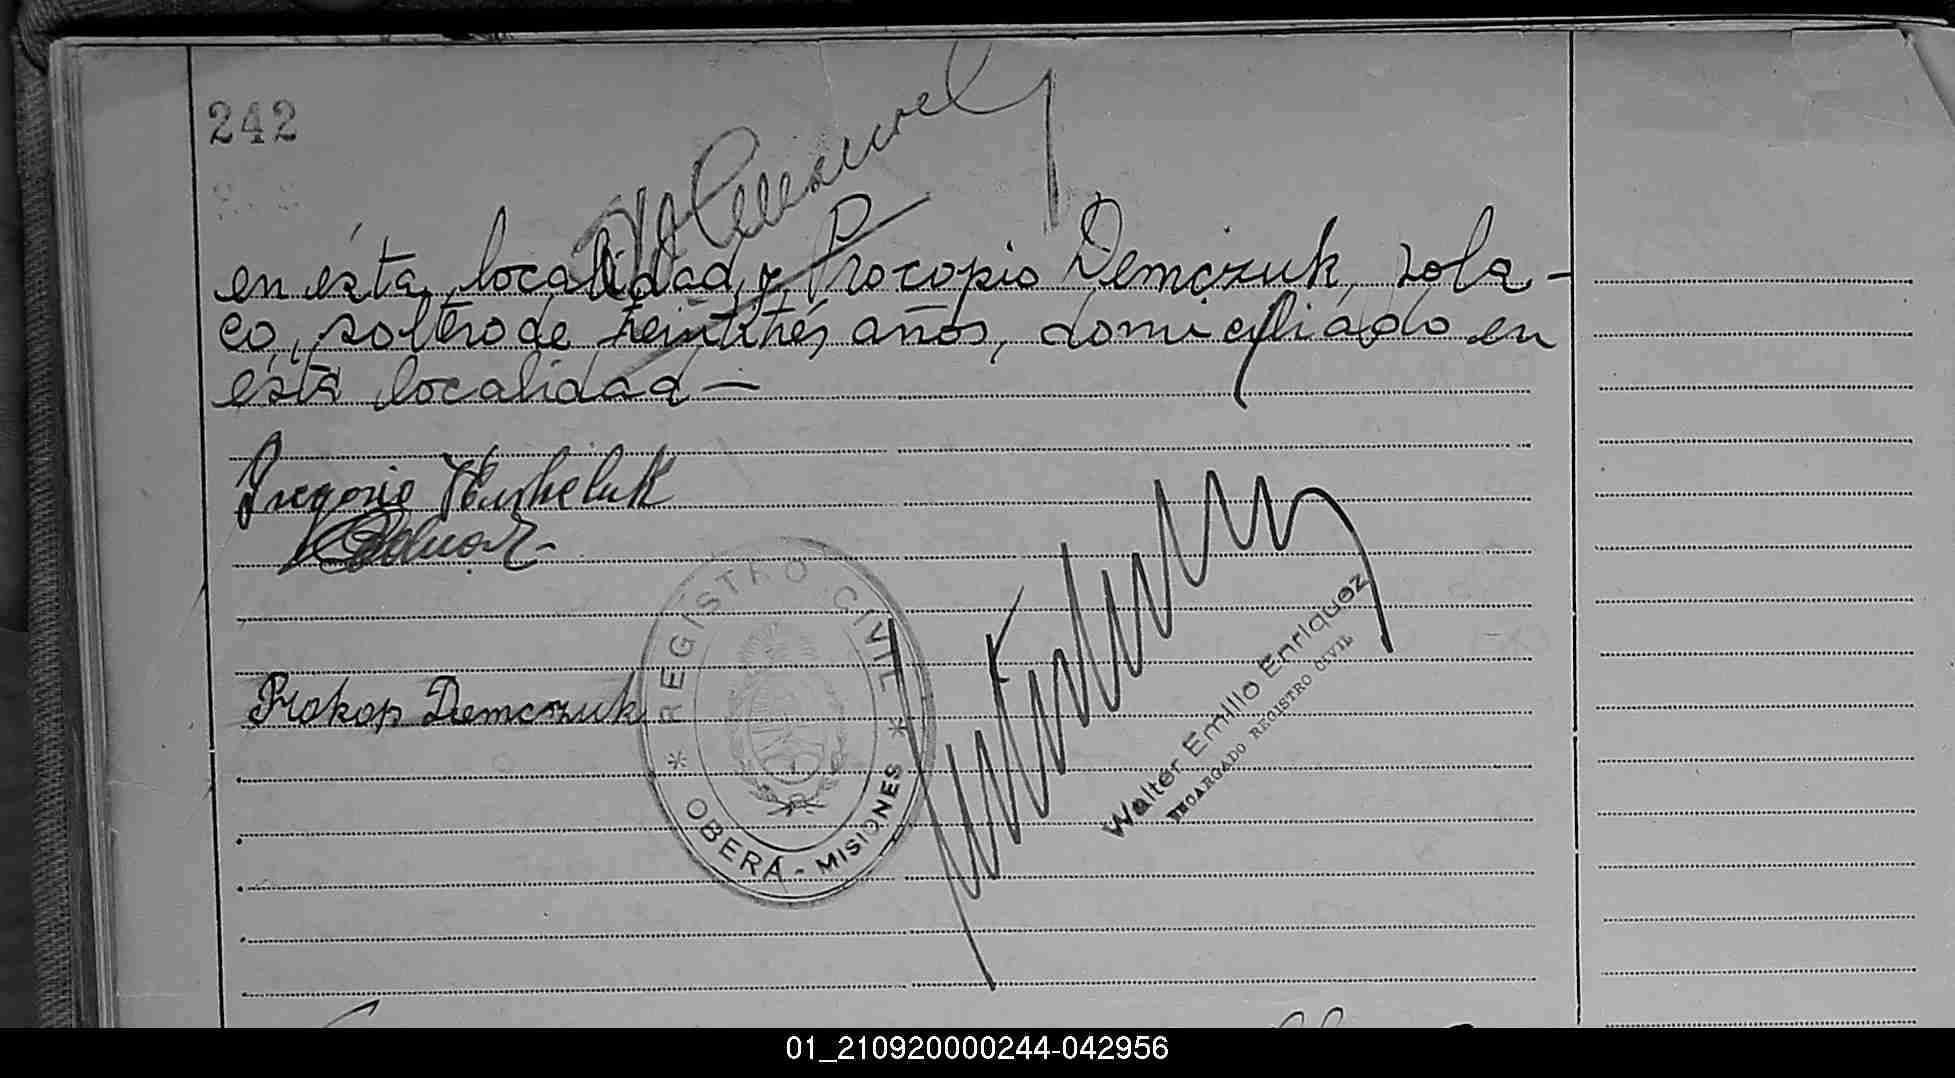 242
en ésta localidad, y Procopio Demczuk, pola-
co, soltero de treintitrés años, domiciliado en
ésta localidad —
Gregorio
REGISTRO CIVIL
Prokop Demczuk
Walter Emilio Enriquez
ENCARGADO REGISTRO CIVIL
* OBERÁ - MISIONES *
01_210920000244-042956